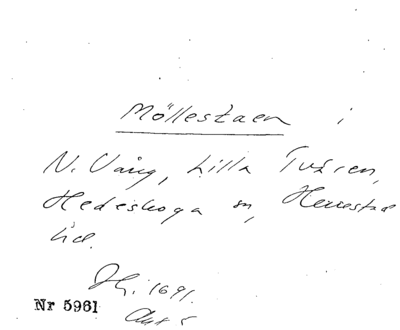 Möllestaen i
N. Vång, Lilla Tvären,
Hedeskoga sn, Herrestad
hd.
1691.
Nr 5961